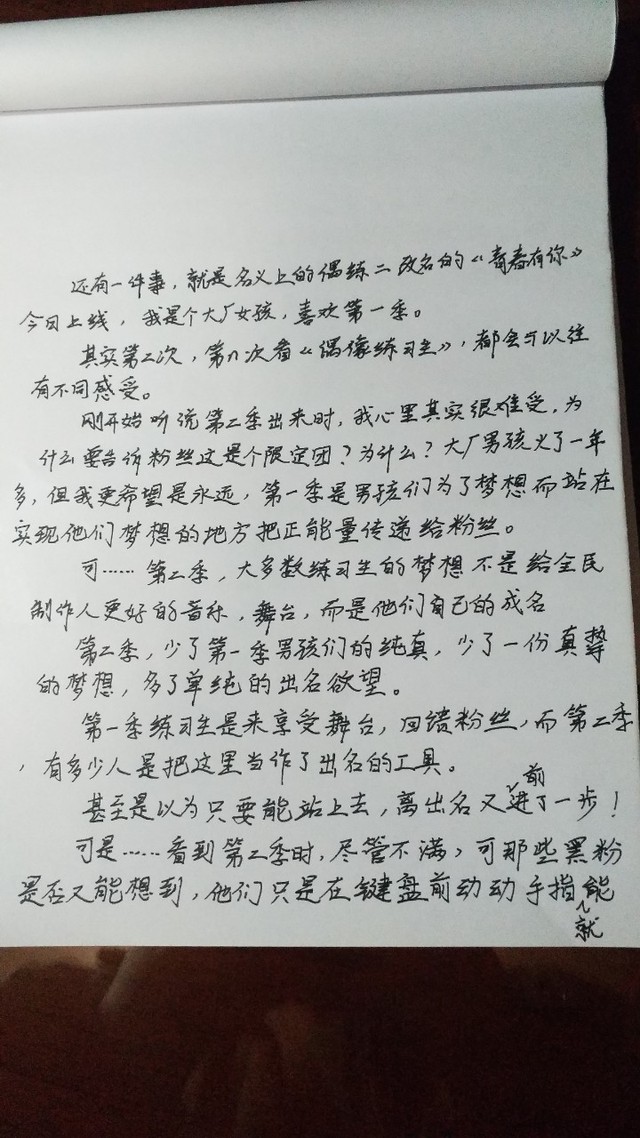 还有一件事，就是名义上的偶练二改名的《青春有你》
今日上线，我是个大厂女孩，喜欢第一季。
其实第二次，第n次看《偶像练习生》，都会与以往
有不同感受。
刚开始听说第二季出来时，我心里其实很难受，为
什么要告诉粉丝这是个限定团？为什么？大厂男孩火了一年
多，但我更希望是永远，第一季是男孩们为了梦想而站在
实现他们梦想的地方把正能量传递给粉丝。
可……第二季，大多数练习生的梦想不是给全民
制作人更好的音乐，舞台，而是他们自己的成名
第二季，少了第一季男孩们的纯真，少了一份真挚
的梦想，多了单纯的出名欲望。
第一季练习生是来享受舞台，回馈粉丝，而第二季
，有多少人是把这里当作了出名的工具。
甚至是以为只要能站上去，离出名又前进了一步！
可是……看到第二季时，尽管不满，可那些黑粉
是否又能想到，他们只是在键盘前动动手指就能